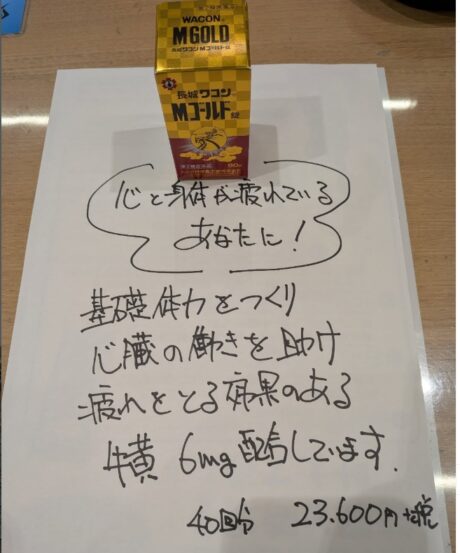 WACON
M GOLD
長城ワコン
Mゴールド錠
心と身体が疲れている
あなたに!
基礎体力をつくり
心臓の働きを助け
疲れをとる効果のある
牛黄 6mg配合しています.
40回分 23.600円+税